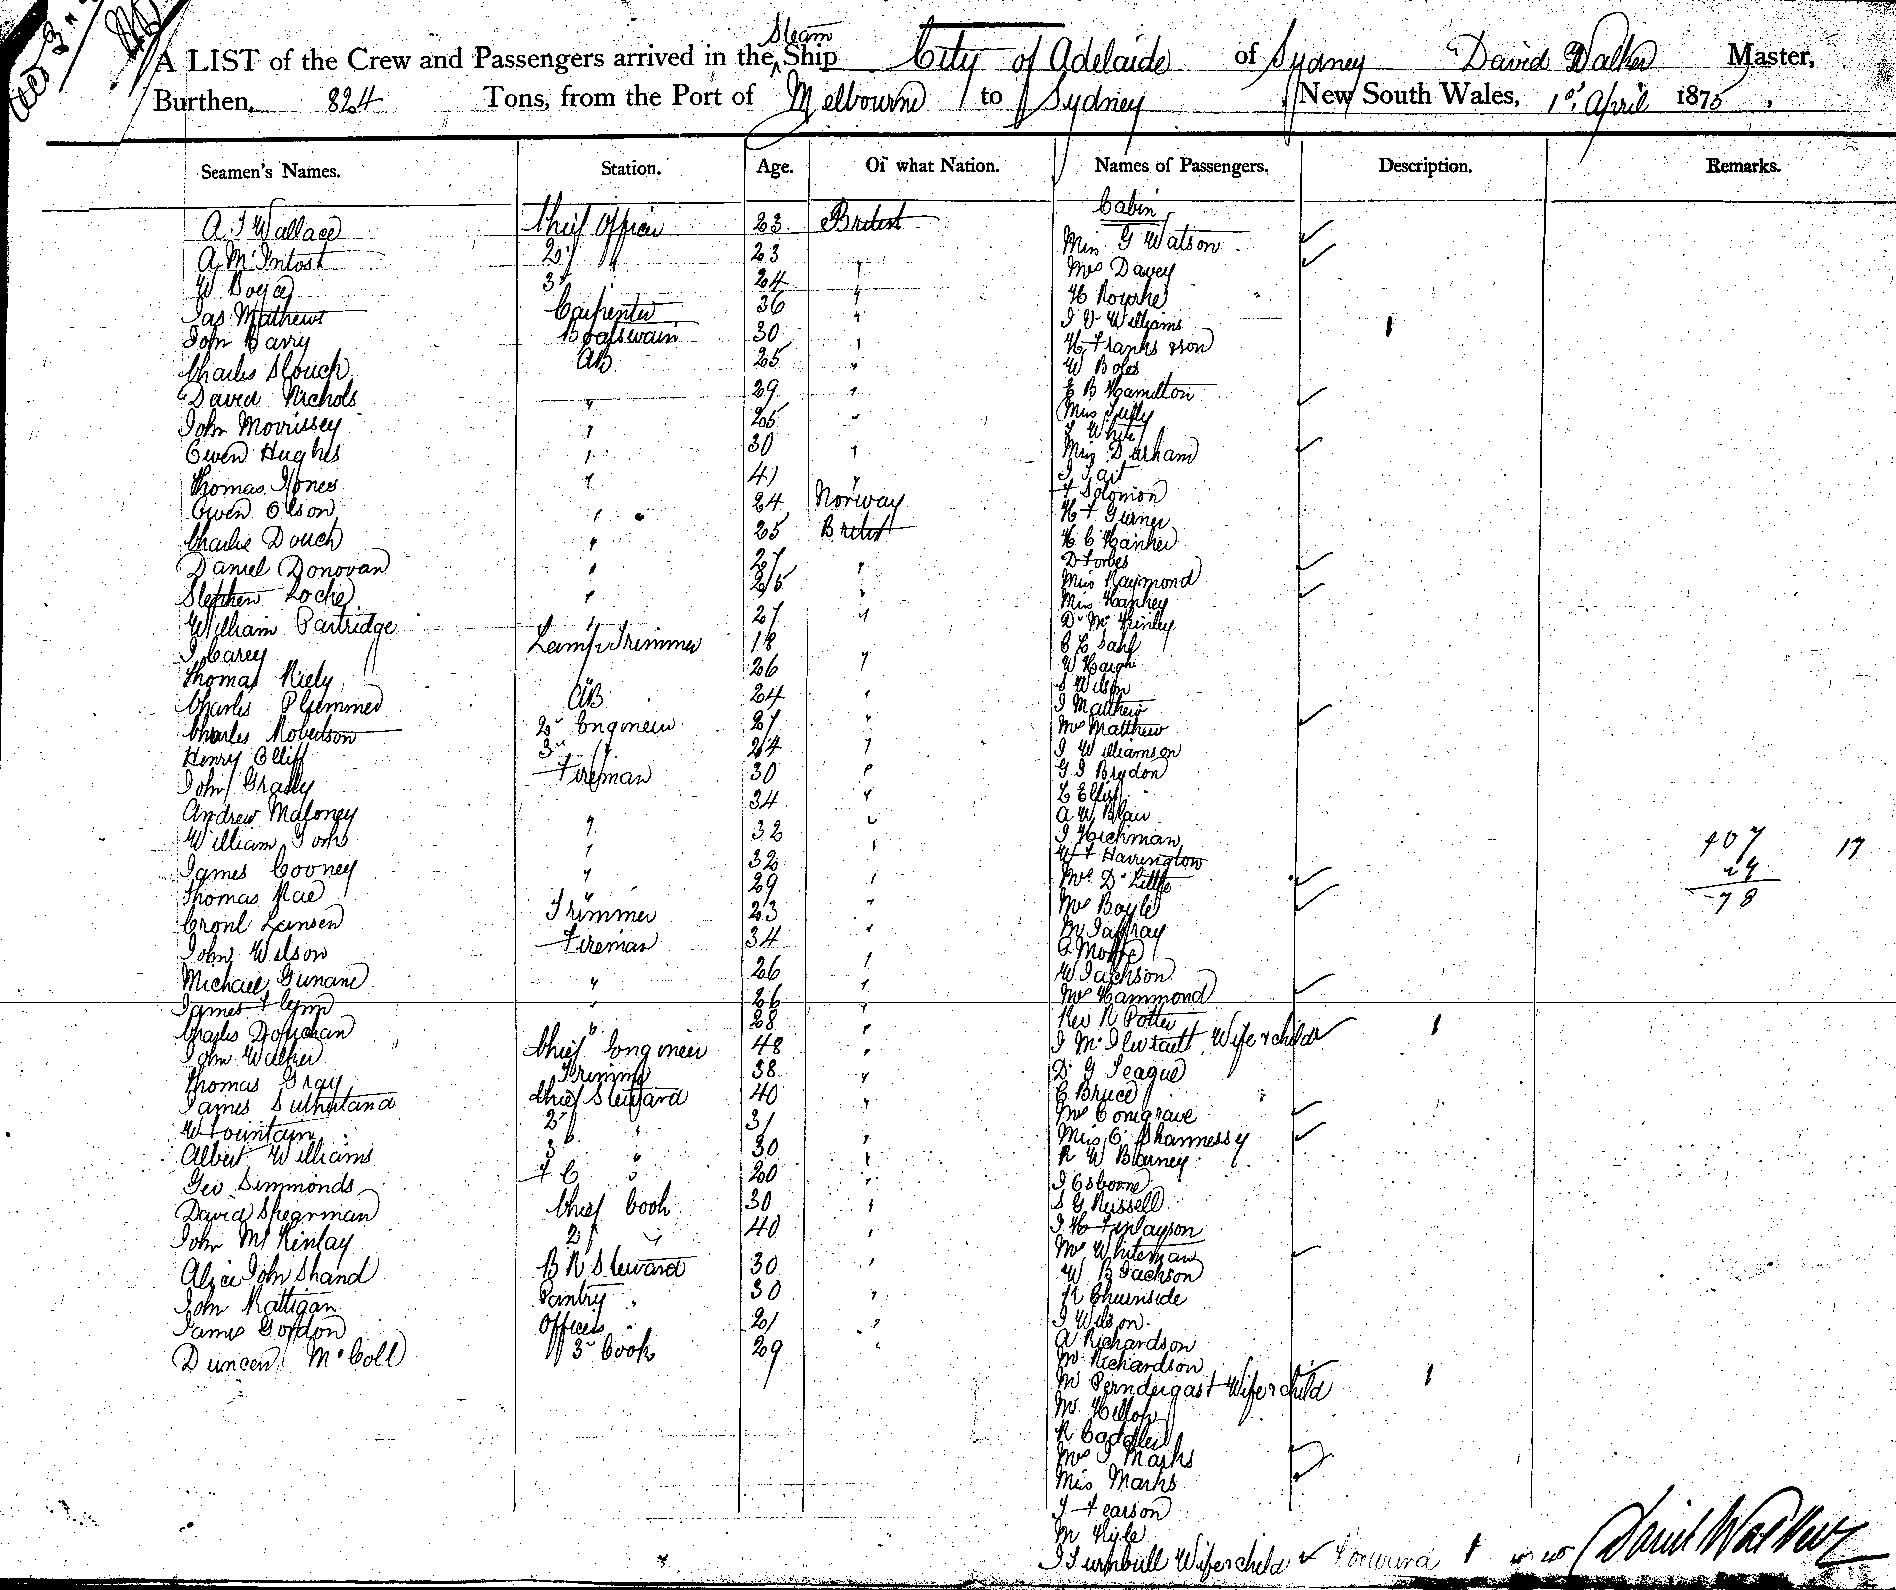 A LIST of the Crew and Passengers arrived in the Steam Ship City of Adelaide of Sydney David Walker Master,
Burthen, 824 Tons, from the Port of Melbourne to Sydney New South Wales, 1st April 1875
Seamen's Names. Station. Age. Of what Nation. Names of Passengers. Description. Remarks.
Cabin
A J Wallace Chief Officer 23 British
Miss G Watson
A McIntosh 2d " 23
Mrs Davey
W Boyce 3d 24 "
H Rourke
Jas Mathews Carpenter 36 "
J V Williams
John Barry Boatswain 30 "
H Franks & son
Charles Slouch AB 25 "
W Boles
David Nichols " 29 "
E B Hamilton
John Morrissey " 25 "
Miss Tully
J White
Owen Hughes " 30 "
Miss Durham
Thomas Jones " 41 "
J Tait
F Solomon
Owen Olson " 24 Norway
H F Gurner
Charlie Douch " 25 British
H C Hanker
Daniel Donovan " 27 "
D Forbes
Stephen Locke " 25 "
Miss Raymond
Miss Hankey
William Partridge " 27 "
Dr McKinley
J Carey Lamp Trimmer 18
C E Dahl
Thomas Riely 26 "
W Haigh
S Wilson
Charles Plummer AB 24 "
J Matthew
Charles Robertson 2d Engineer 27 "
Mrs Matthew
Henry Elliff 3d " 24 "
J Williamson
John Grady Fireman 30 "
G J Brydon
L Ellis
Andrew Maloney 34 "
A W Blair
William Tom " 32 "
J Hickman
W F Harrington
James Cooney " 32 "
Mrs Dr Little
Thomas Rae " 29 "
Mrs Boyle
Trimmer 23 "
M Jaffray
John Wilson Fireman 34 "
W Jackson
Michael Gunane " 26 "
Mrs Hammond
James Flynn " 26 "
Rev R Potter
Charles " 28 "
J McIlwraith Wife & child 1
John Walker Chief Engineer 48 "
D G Teague
Thomas Gray Trimmer 38 "
C Bruce
James Sutherland Chief Steward 40 "
Mrs Conigrave
W Fountain 2d " 31 "
Miss O'Shannessy
Albert Williams 3d " 30 "
R W Barney
Geo Simmonds F C " 20 "
J Osborne
David Shearman Chief Cook 30 "
S G Russell
John McKinlay 2d " 40 "
J H Finlayson
Mrs Whiteman
Alice John Shand B R Steward 30 "
W B Jackson
John Rattigan Pantry " 30 "
R Chirnside
James Gordon Officers " 21 "
J Wilson
A Richardson
Duncan McColl 3d Cook 29 "
Mr Richardson
Mr Perndergast Wife & child 1
Mr Hellop
Mrs J Marks
Miss Marks
J Fearson
M Kyle
J Turnbull Wife & child Forward 1
107 17
29
78
David Walker